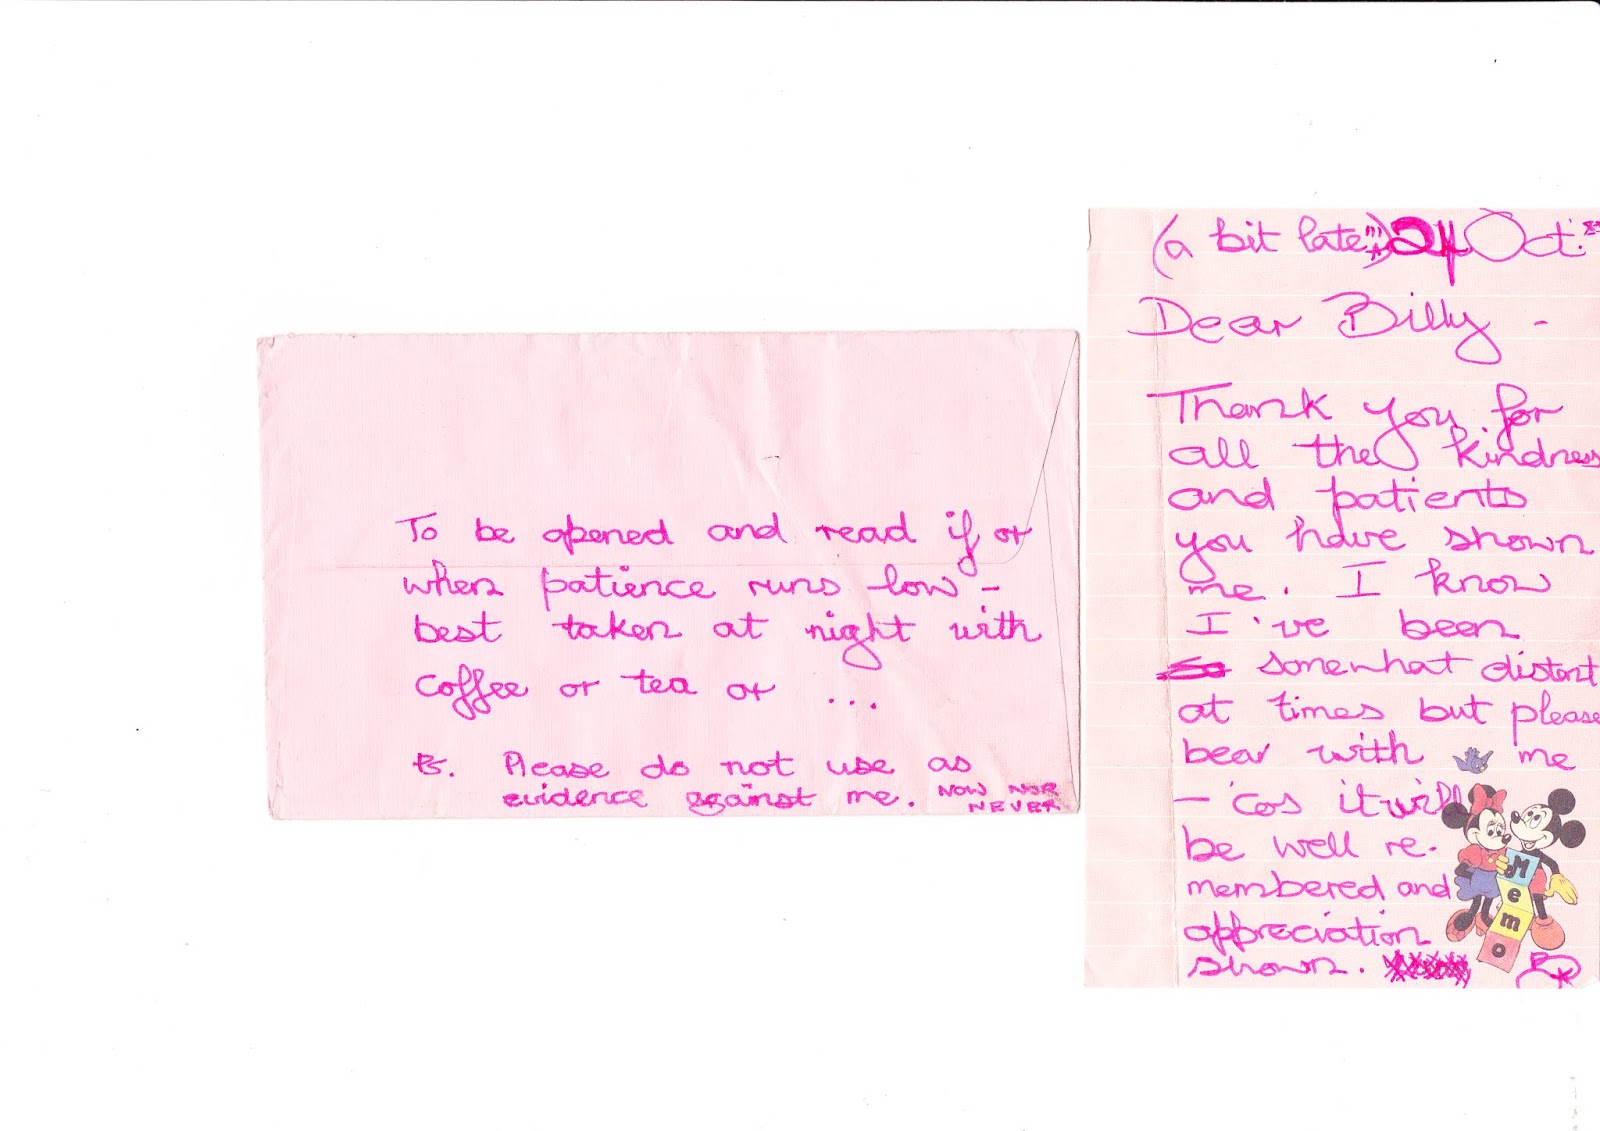 To be opened and read if or
when patience runs low -
best taken at night with
coffee or tea or ...
Ps. Please do not use as
evidence against me. NOW NOR
NEVER
(a bit late!!!) 24 Oct.
Dear Billy -
Thank you for
all the kindness
and patients
you have shown
me. I know
I've been
somewhat distant
at times but please
bear with me
- 'cos it will
be well re-
membered and
appreciation
shown.
Memo